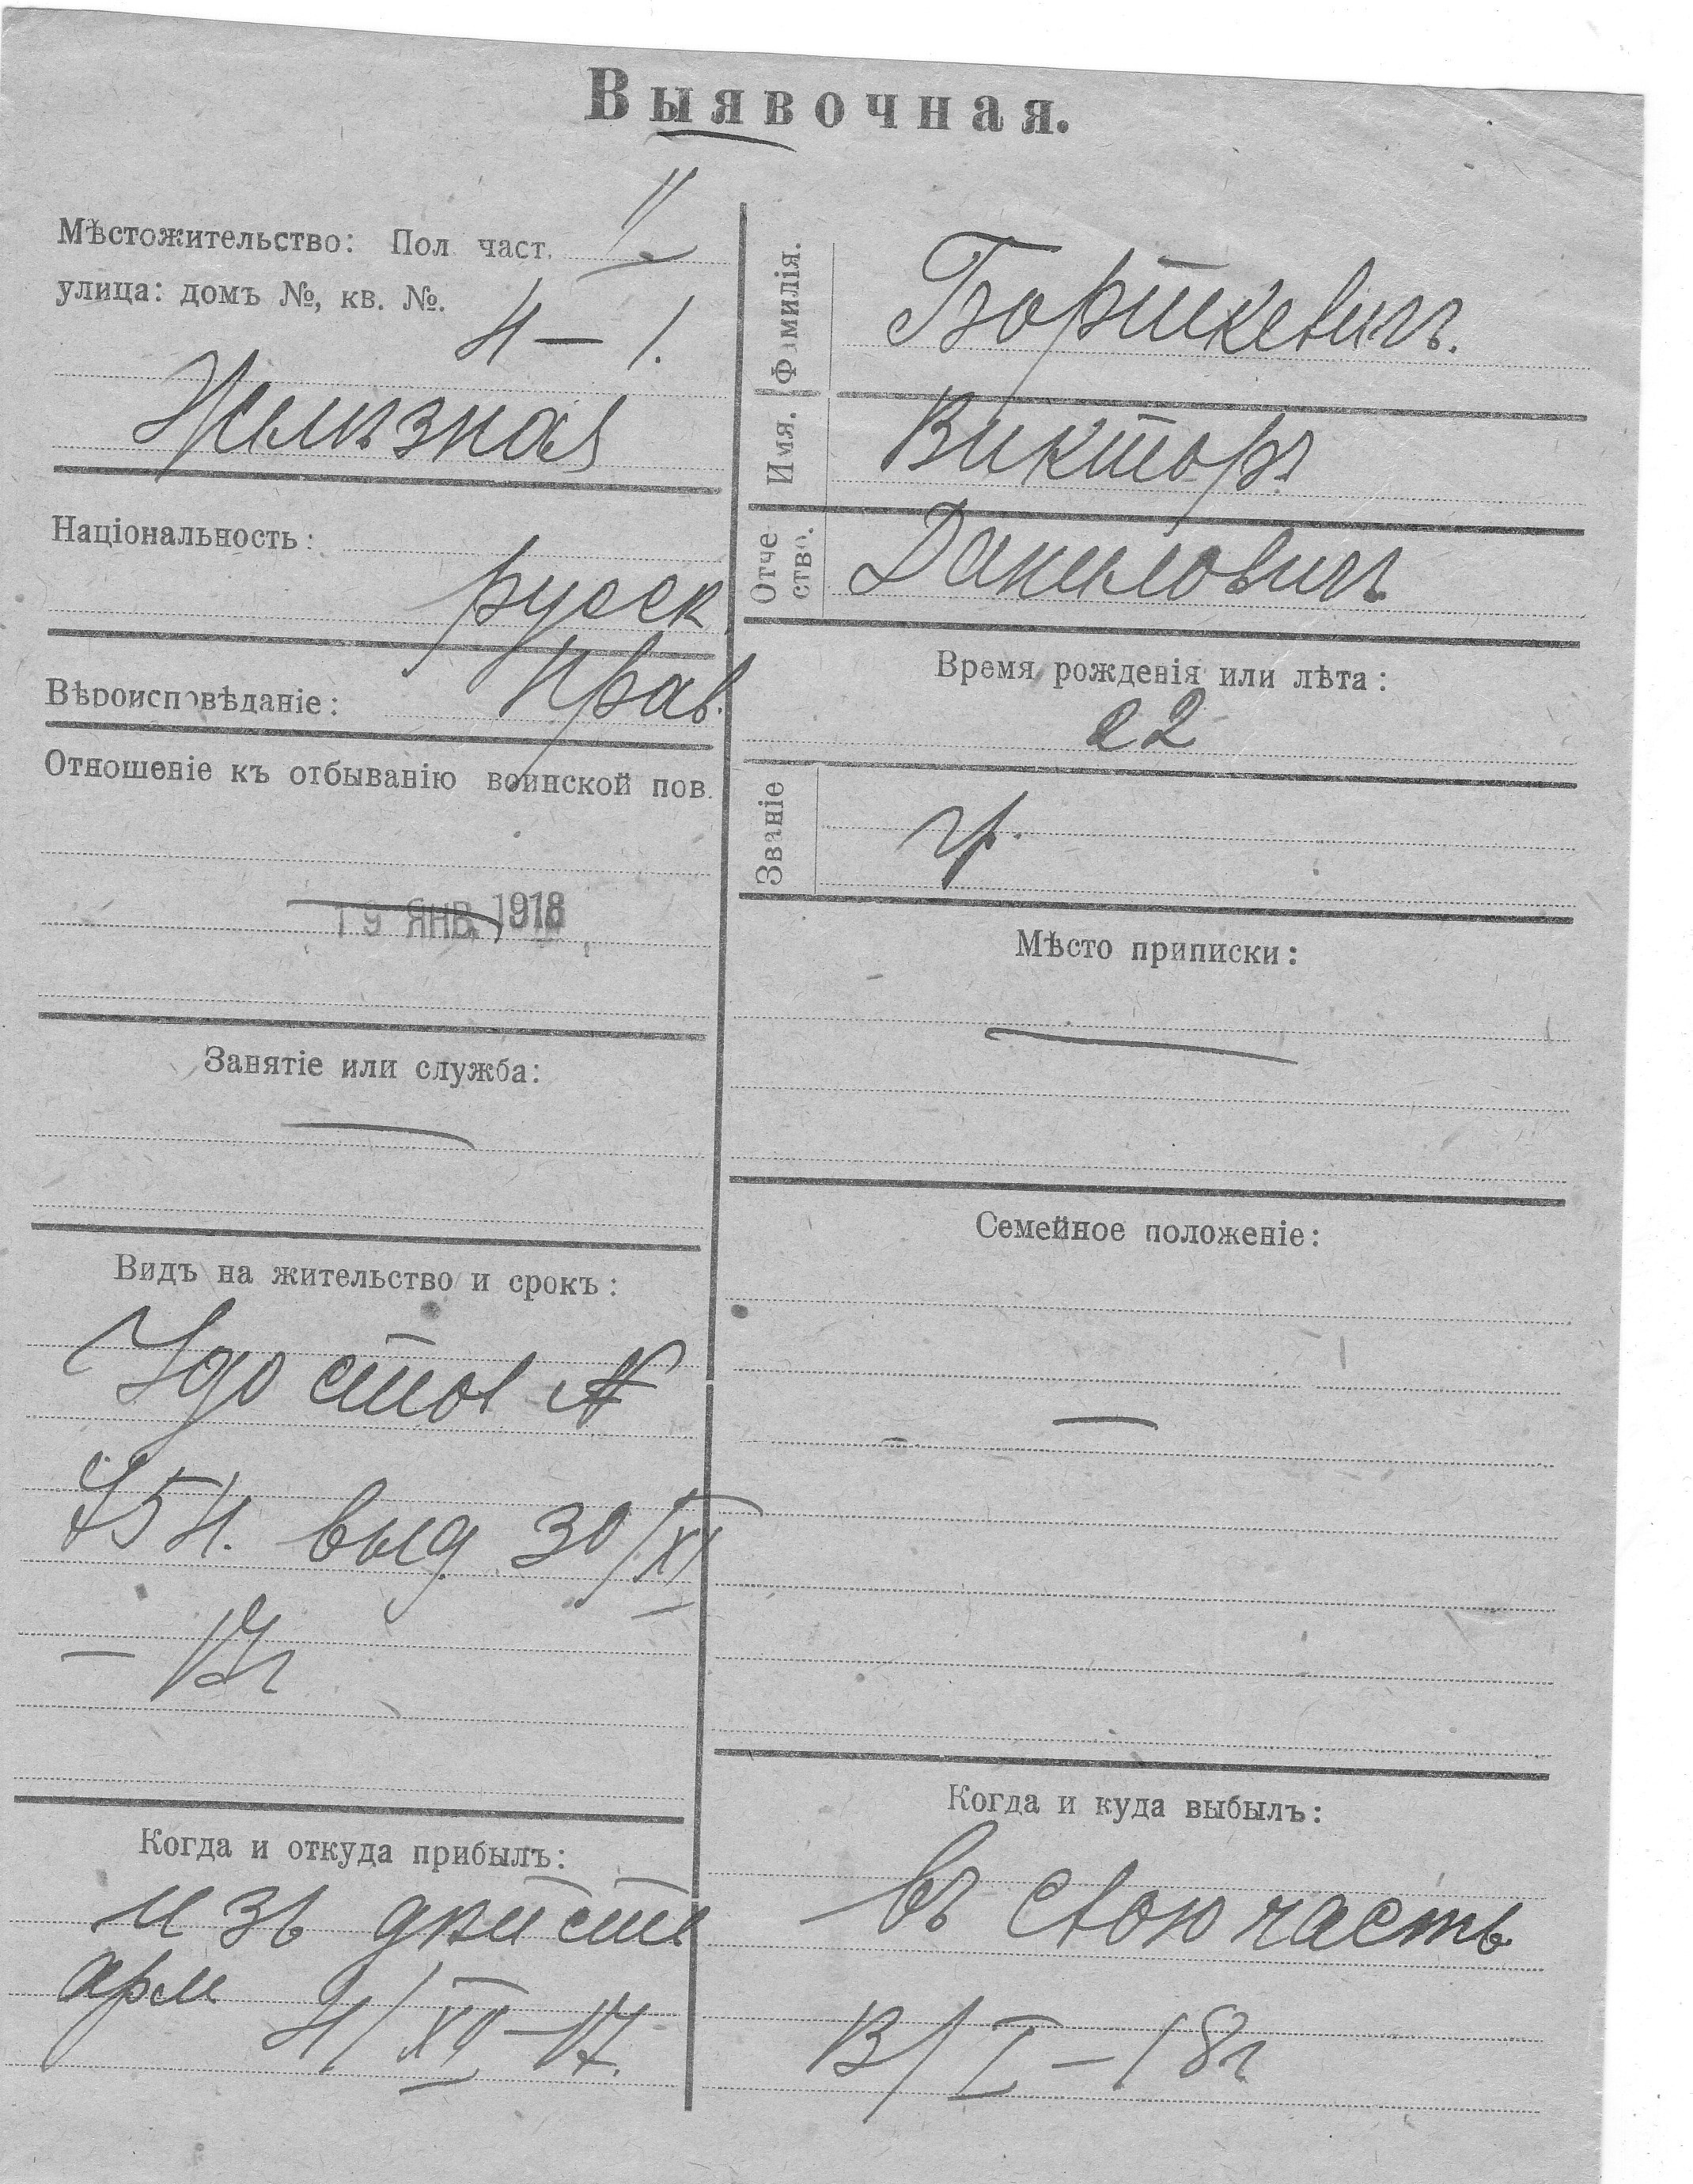 Выявочная.
Мѣстожительство: Пол част.
улица: домъ №, кв. №.
4 – 1.
Желѣзная
Національность:
русск.
Вѣроисповѣданіе: Прав.
Отношеніе къ отбыванію воинской пов.
19 ЯНВ. 1918
Занятіе или служба:
—
Видъ на жительство и срокъ:
Удостов №
754. выд 30/XI
– 17г
Когда и откуда прибылъ:
изъ дѣйств
арм 4/XII–17.
Фамилія. Борткевичъ.
Имя. Викторъ
Отче
ство. Даниловичъ
Время рожденія или лѣта:
22
Званіе гр.
Мѣсто приписки:
—
Семейное положеніе:
—
Когда и куда выбылъ:
въ свою часть
13/I–18г